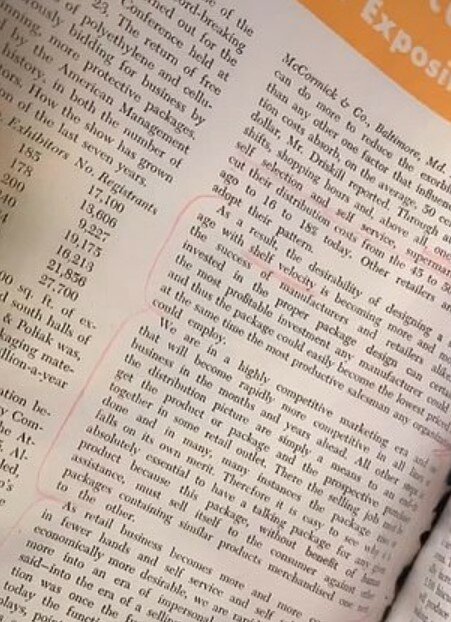 e of the
ord-breaking
ned out for the
Conference held at
23, The return of free
of polyethylene and cellu-
rously bidding for business by
ming, more protective packages.
l by the American Management
history, in both the number of
tors. How the show has grown
on of the last seven years.
Exhibitors No. Registrants
185 17,100
178 13,606
200 9,227
240 19,175
16,213
21,856
27,700
00 sq. ft. of ex-
d south halls of
& Poliak was,
kaging mate-
llion-a-year
ation be-
y Com-
he At-
Al-
led,
o's
Exposi
McCormick & Co., Baltimore, Md.
can do more to reduce the exorbi
than any other one factor that influen
tion costs absorb, on the average, 50 ce
dollar, Mr. Driskill reported. Through au
shifts, shopping hours and, above all, one
self selection and self service, supermar
cut their distribution costs from the 45 to 50
ago to 16 to 18% today. Other retailers ar
adopt their pattern.
As a result, the desirability of designing a
age with shelf velocity is becoming more and mo
the success of manufacturers and retailers alike.
invested in the proper package design can certai
the most profitable investment any manufacturer could
and thus the package could easily become the lowest priced
at the same time the most productive salesman any organiz
could employ.
We are in a highly competitive marketing era and
that will become rapidly more competitive in all lines
business in the months and years ahead. All other steps
the distribution picture are simply a means to an end
get the product or package and the prospective purchaser
together in some retail outlet. There the selling job must be
done and in many, many instances the package rises
falls on its own merit. Therefore it is easy to see why it is
absolutely essential to have a talking package for any given
product because this package, without benefit of human
assistance, must sell itself to the consumer against other
packages containing similar products merchandised one next
to the other.
As retail business becomes more and more co
in fewer hands and self service and self s
economically more desirable, we are rapi
more into an era of impersonal
said—into the era of a selling
tion was once the fu
today the functi
plays, point